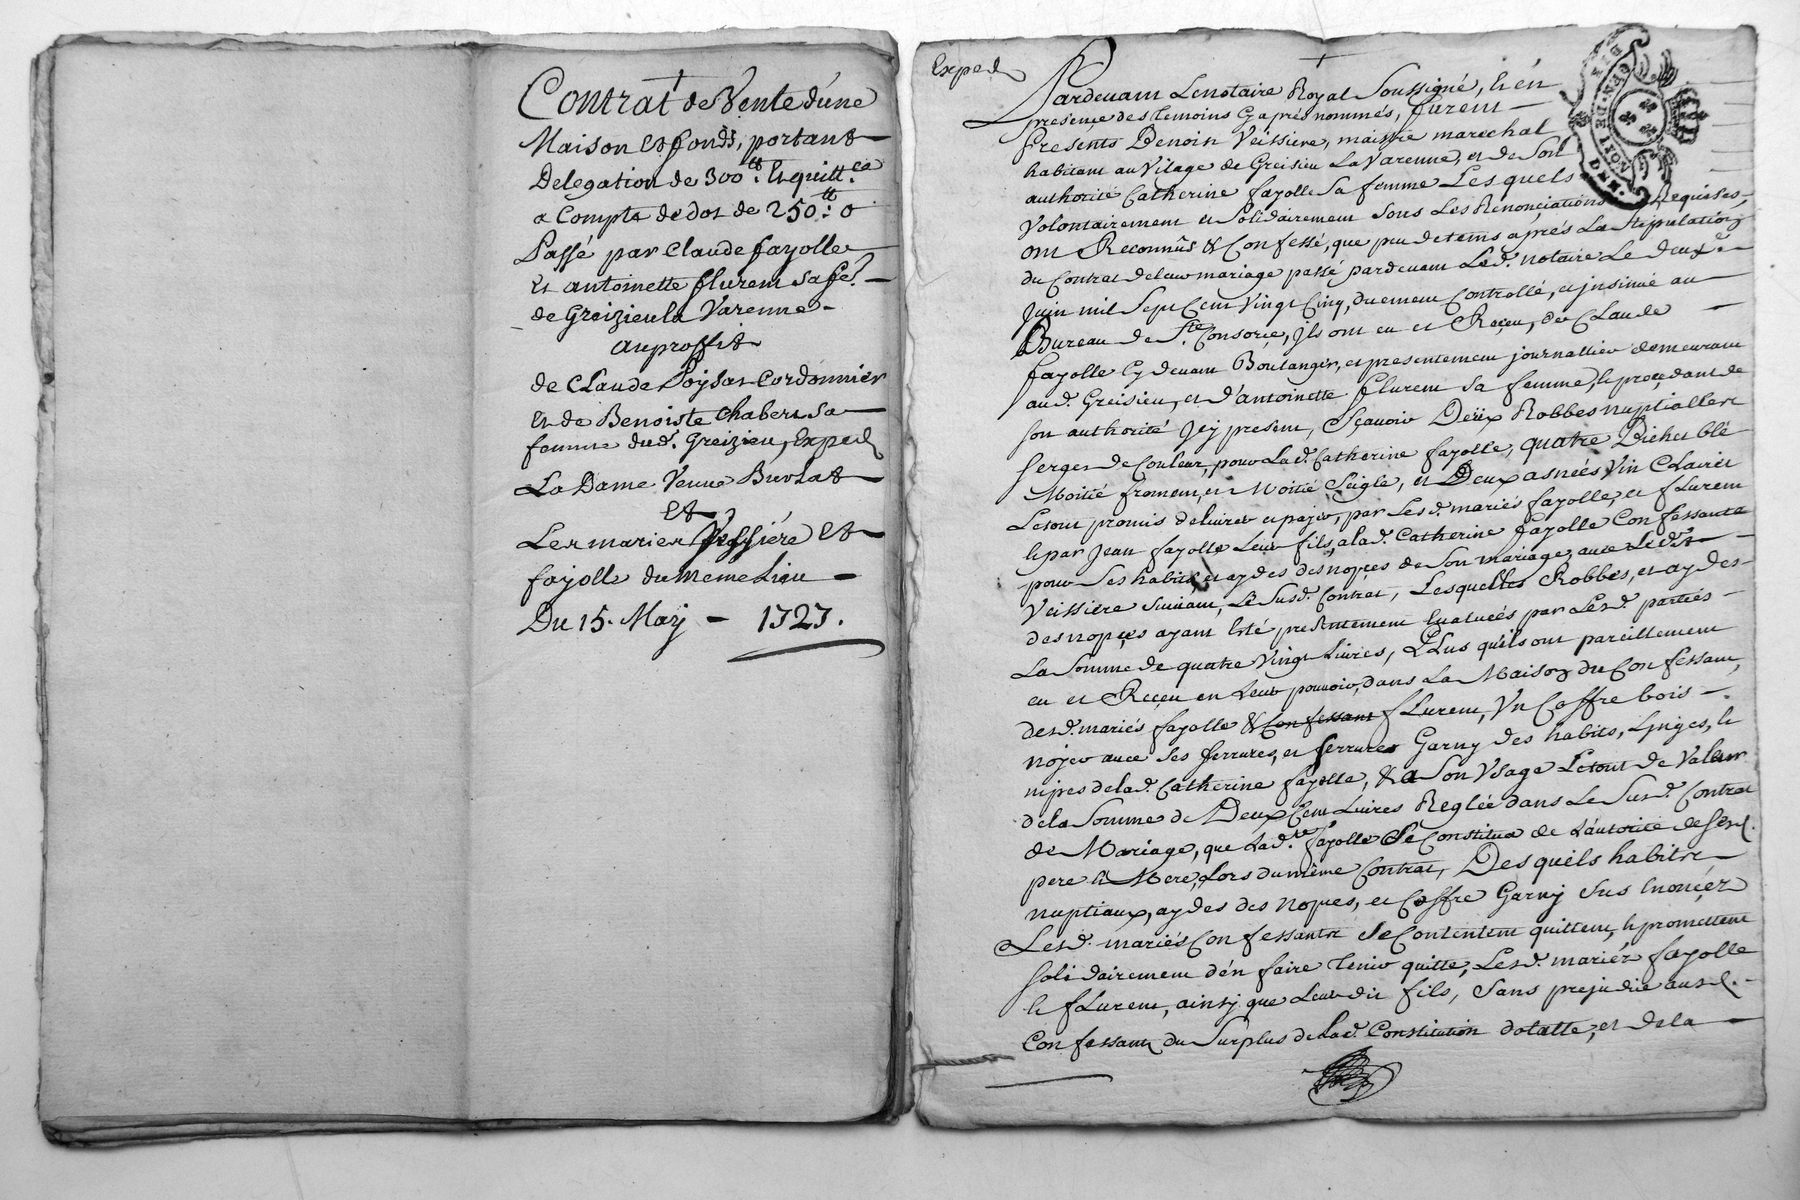 Contrat de Vente d'une
Maison et fonds, portant
Delegation de 300tt. Et quitt.ce
a Compte de dot de 250tt: o
Passé par Claude fayolle
Et antoinette flurent sa fe.
de Greizieu la Varenne
au proffit
de Claude Poysat Cordonnier
Et de Benoiste Chabert sa
femme dud. Greizieu, Exped
La Dame Veuve Burlat
Et
Les mariés Vessiére Et
fayolle du Meme Lieu
Du 15. May 1727.
Exped
Pardevant Le notaire Royal Soussigné, Et en
presence des temoins Cy aprés nommés, furent
Presents Benoit Veissiere, maistre marechal
habitant au Vilage de Greisieu La Varenne, et de Son
authorité Catherine fayolle Sa femme Lesquels
Volontairement et Solidairement Sous Les Renonciations Requises,
ont Reconnûs & Confessé, que peu de tems aprés La Stipulation
du Contrat de Leur mariage passé pardevant Led. notaire Le deux.e
Juin mil Sept Cent Vingt Cinq, duement Controllé, et jnsinué au
Bureau de Ste. Consorce, jls ont eu et Reçeu, de Claude
fayolle Cy devant Boulanger, et presentement journallier demeurant
aud. Greisieu, et d'antoinette flurent sa femme, Le proçedant de
son authorité Jcy present, Sçavoir Deux Robbes nuptialles
serges de Couleur, pour Lad. Catherine fayolle, quatre Bichet blé
Moitié froment, et Moitié Seigle, et Deux asneés Vin Clairet
Letout promis delivrer et payer, par Lesd. mariés fayolle, et flurent
Et par Jean fayolle Leur fils, a lad. Catherine fayolle Confessante
pour Ses habits, et aydes des nopces de Son mariage, avec Ledit
Veissiere Suivant, Le Susd. Contrat, Lesquelles Robbes, et aydes
des nopçes ayant Eté presentement Evaluées par Lesd. parties
La Somme de quatre Vingt Livres, PLus qu'ils ont pareillement
eu et Reçeu en Leur pouvoir, dans La Maison du Confessant,
desd. mariés fayolle & Confessant fLurent, Vn Coffre bois
noyer avec Ses ferrures, et ferrures Garny des habits, Lynges, Et
nipes de lad. Catherine fayolle, & a Son Vsage Letout de Valeur
de la Somme de Deux Cent Livres Reglée dans Le Susd. Contrat
de Mariage, que Lad.te fayolle Se Constitua de L'autorité de sesd.
pere Et Mere, Lors du même Contrat, Desquels habits
nuptiaux, aydes des nopces, et Coffre Garny Sus Enoncéz
Lesd. mariés Confessants Se Contentent quittent, Et promettent
Solidairement d'en faire tenir quitte, Lesd. mariéz fayolle
Et fLurent, ainsy que Leurdit fils, Sans prejudice ausd.
Confessants du Surplus de Lad. Constitution dotalle, et de la
GEN. DE LYON